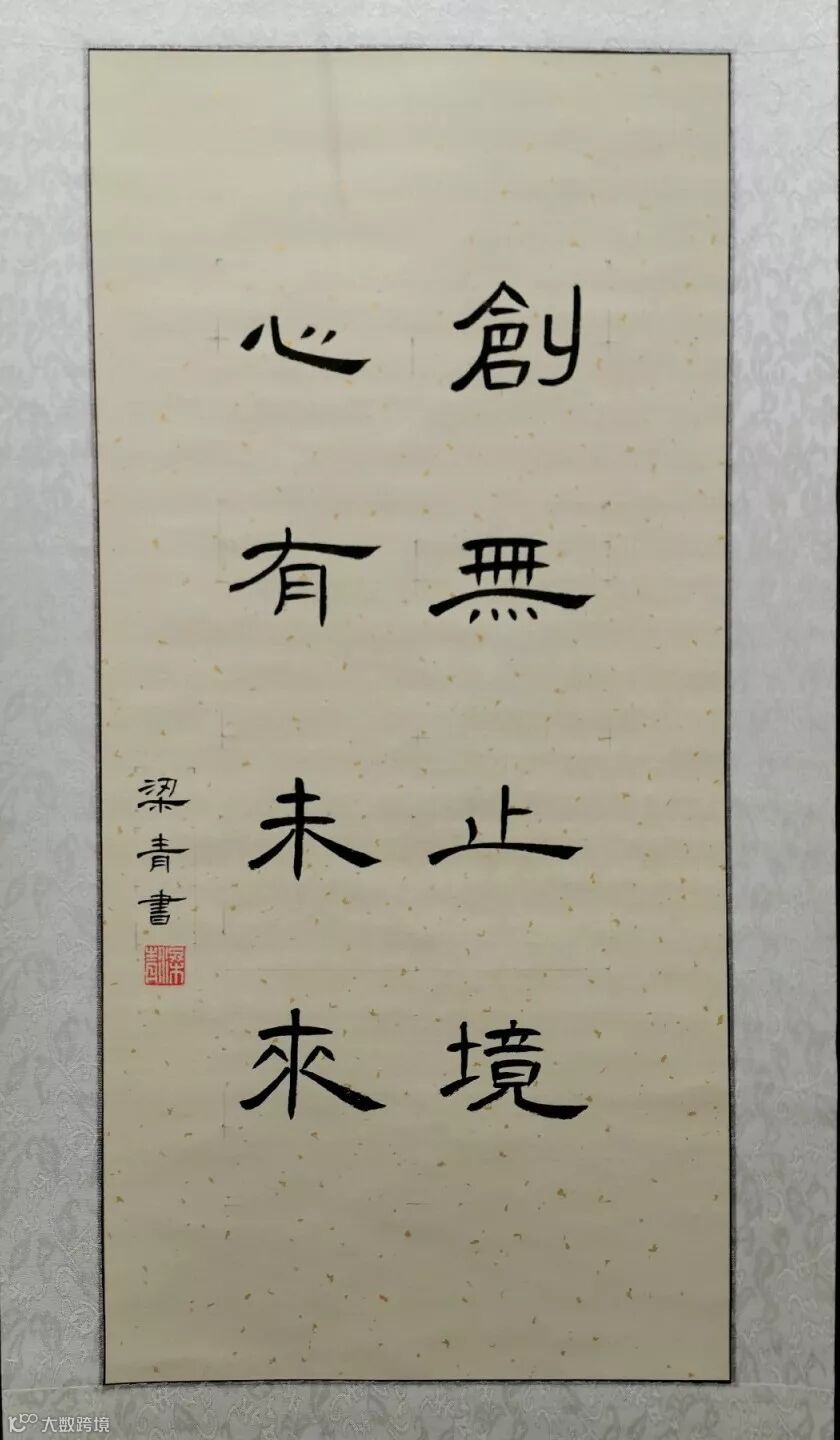 創無止境
心有未來
梁青書
大数跨境